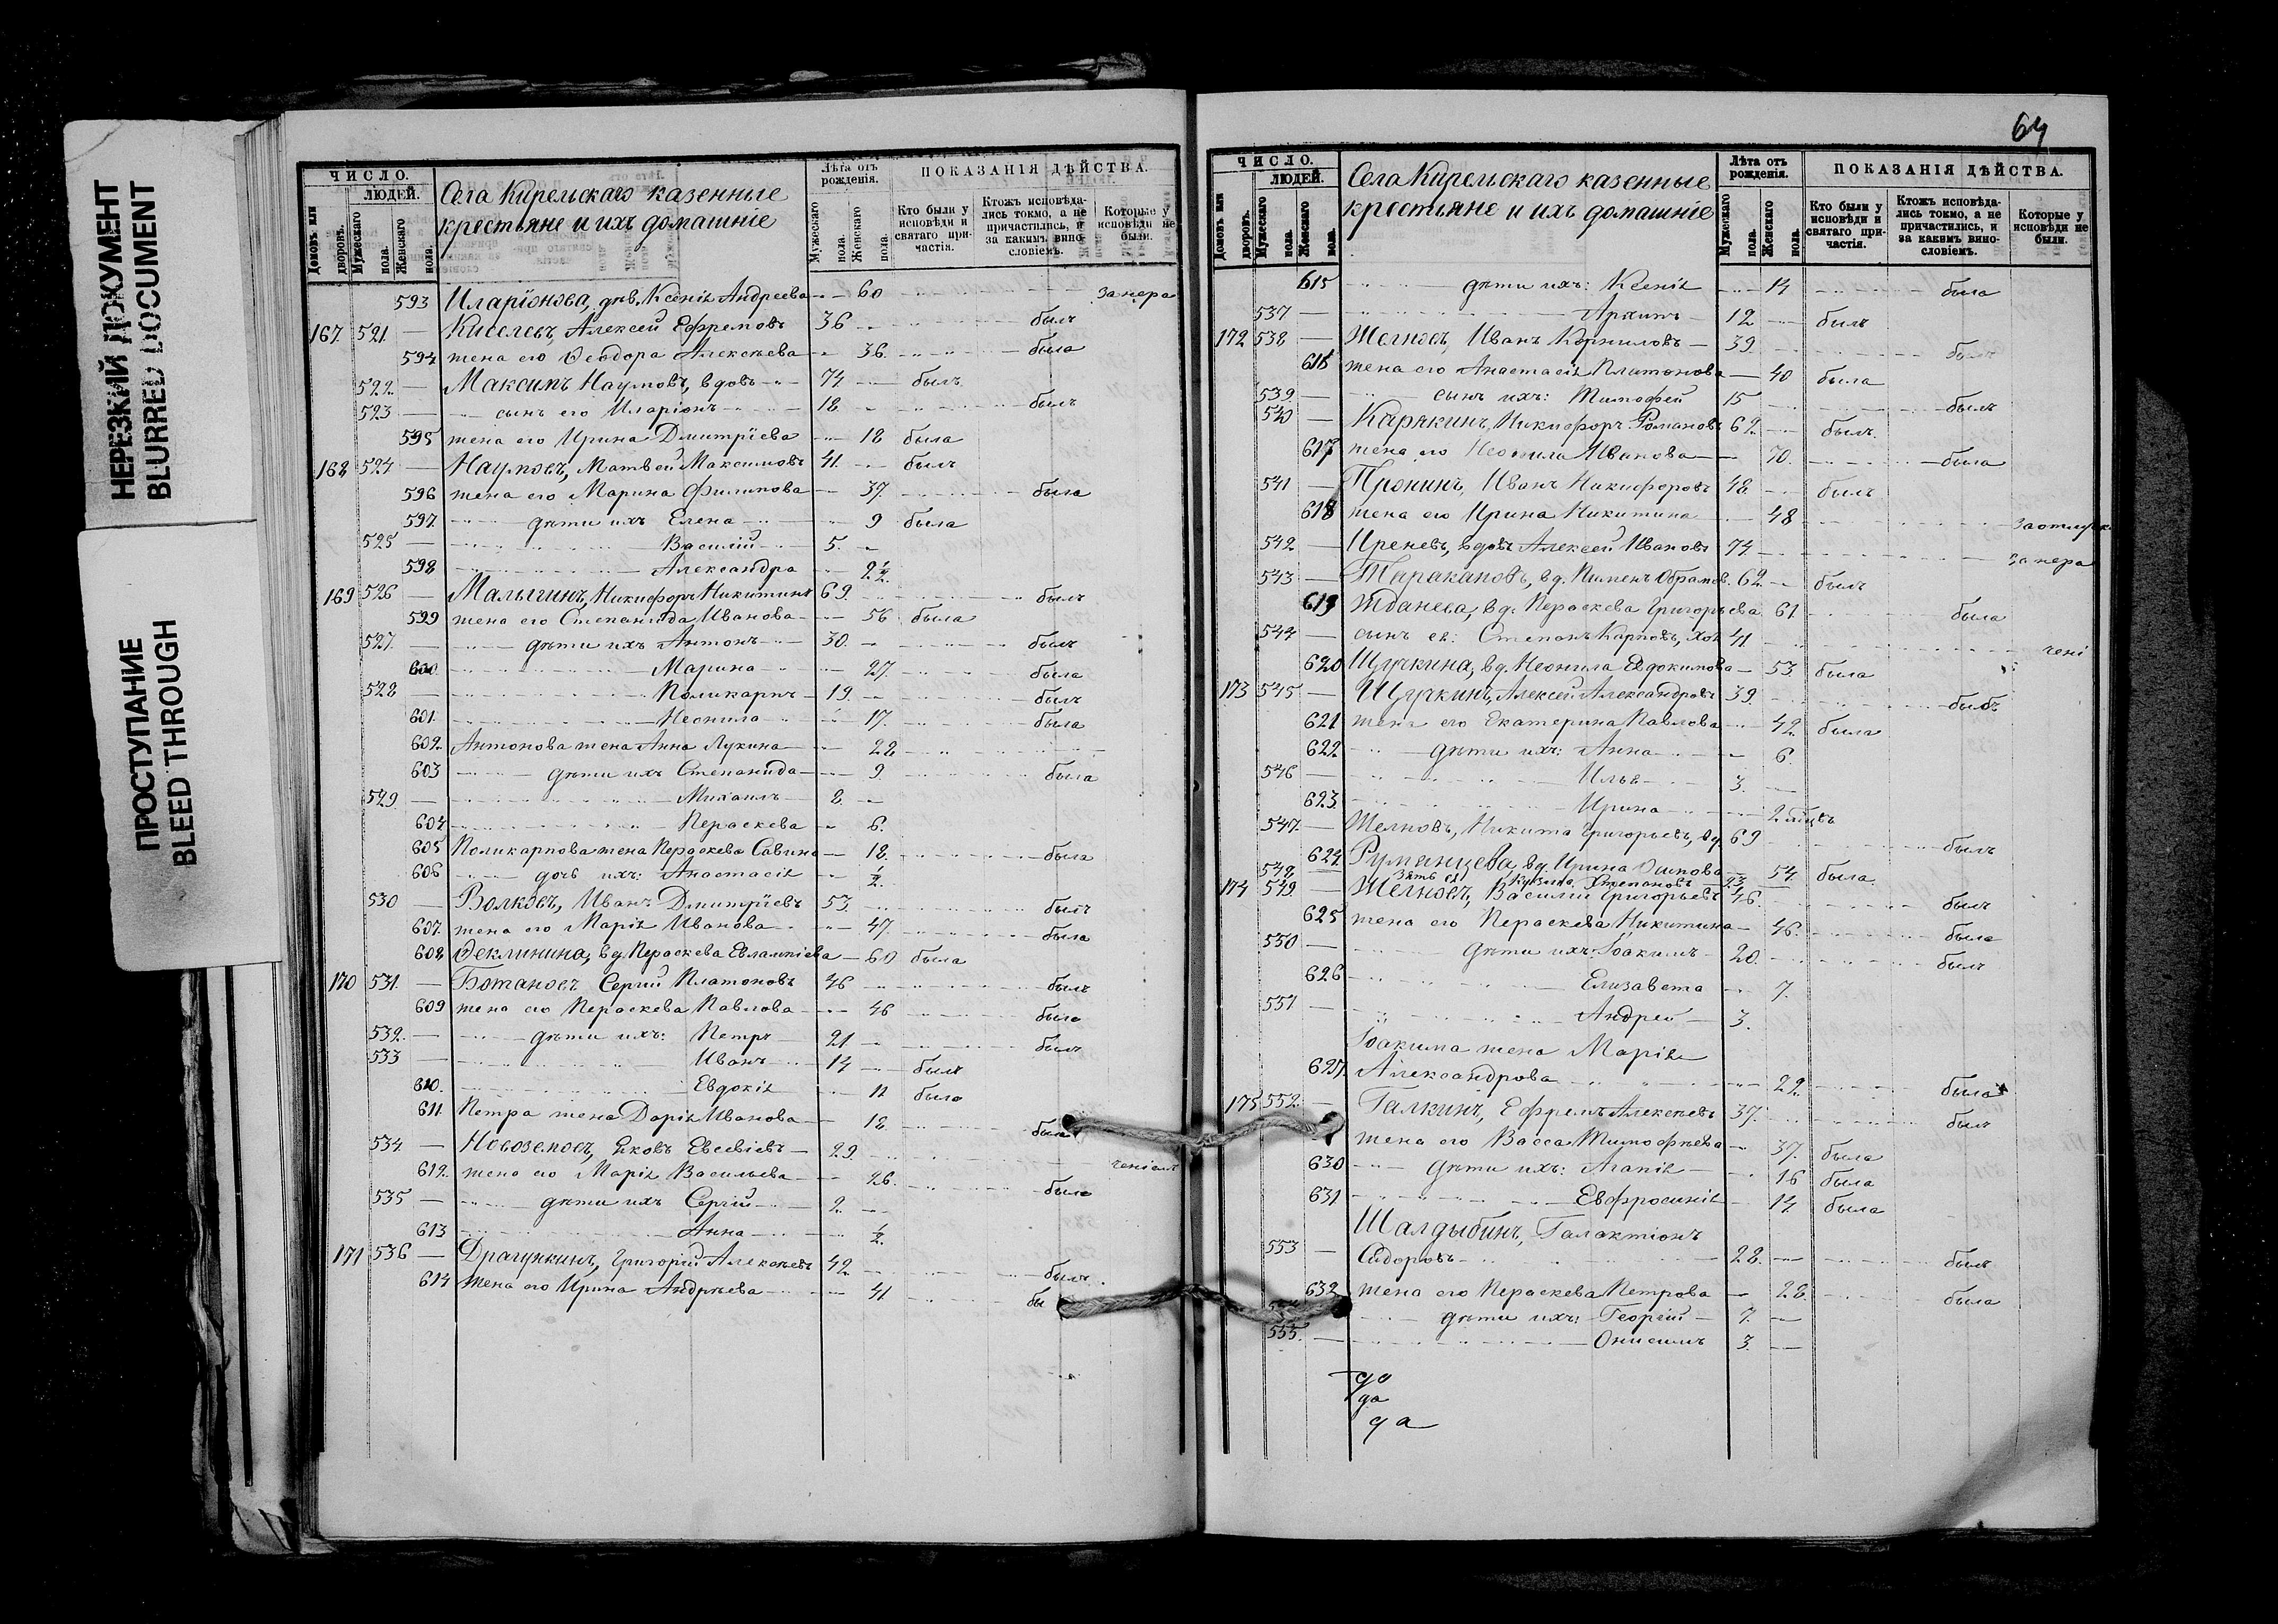 НЕРЕЗКИЙ ДОКУМЕНТ
BLURRED DOCUMENT
ПРОСТУПАНИЕ
BLEED THROUGH
ЧИСЛО.
ЛЮДЕЙ.
Домовъ или дворовъ.
Мужескаго пола.
Женскаго пола.
Села Кирельскаго казенные
крестьяне и ихъ домашніе
Лѣта отъ рожденія.
Мужескаго пола.
Женскаго пола.
ПОКАЗАНІЯ ДѢЙСТВА.
Кто были у исповѣди и святаго причастія.
Ктожъ исповѣдались токмо, а не причастились, и за какимъ винословіемъ.
Которые у исповѣди не были.
593 Иларіонова, дѣв. Ксенія Андреева 60 за нера
167. 521. Киселевъ, Алексей Ефремовъ 36 былъ
594 жена его Ѳеодора Алексѣева 36. была
522. Максимъ Наумовъ, вдовъ 74 былъ
523 сынъ его Иларіонъ 18. былъ
595 жена его Ирина Дмитріева 18 была
168 524 Наумовъ, Матвей Максимовъ 41. былъ
596 жена его Марина Филипова 37. была
597. дѣти ихъ Елена 9 была
525 Василій 5.
598 Александра 2½
169 526 Малыгинъ, Никифоръ Никитинъ 69. былъ
599 жена его Степанида Иванова 56 была
527. дѣти ихъ Антонъ 30. былъ
600 Марина 27. была
528 Поликарпъ 19. былъ
601. Неонила 17. была
602. Антонова жена Анна Лукина 28
603 дѣти ихъ Степанида 9. была
529. Михаилъ 8.
604 Параскева 6.
605 Поликарпова жена Параскева Савина 18. была
606 дочь ихъ: Анастасія ½
530 Волковъ, Иванъ Дмитріевъ 53. былъ
607. жена его Марія Иванова 47. была
608 Ѳеклинина, вд. Параскева Евлампіева 60 была
170 531. Ботановъ Сергий Платоновъ 46 былъ
609 жена его Параскева Павлова 46 была
532. дѣти ихъ: Петръ 21 былъ
533 Иванъ 14 былъ
610. Евдокія 11 была
611. Петра жена Дарія Иванова 18. была
534. Новоземовъ, Яковъ Евсевіевъ 29. ченіемъ
612. жена его Марія Васильева 26. была
535 дѣти ихъ Сергій 2.
613 Анна ½
171 536 Драгункинъ, Григорій Алексѣевъ 42. былъ
614 жена его Ирина Андрѣева 41 бы
64
ЧИСЛО.
ЛЮДЕЙ.
Домовъ или дворовъ.
Мужескаго пола.
Женскаго пола.
Села Кирельскаго казенные
крестьяне и ихъ домашніе
Лѣта отъ рожденія.
Мужескаго пола.
Женскаго пола.
ПОКАЗАНІЯ ДѢЙСТВА.
Кто были у исповѣди и святаго причастія.
Ктожъ исповѣдались токмо, а не причастились, и за какимъ винословіемъ.
Которые у исповѣди не были.
615 дѣти ихъ: Ксенія 14 была
537 Архипъ 12 былъ
172 538 Желновъ, Иванъ Корниловъ 39. былъ
616 жена его Анастасія Платонова 40 была
539 сынъ ихъ: Тимофей 15 былъ
540 Карякинъ, Никифоръ Романовъ 62. былъ
617 жена его Неонила Иванова 70. была
541 Пронинъ, Иванъ Никифоровъ 48. былъ
618 жена его Ирина Никитина 48
542. вдовъ Алексей Ивановъ 74. за нера
543 Таракановъ, вд. Пименъ 62. былъ
619 Жданева, вд. Параскева Григорьева 61. была
544 сынъ ея: Степанъ Карповъ, хол 41. чені
620 Щучкина, вд. Неонила Евдокимова 53. была
173 545 Щучкинъ, Алексей Александровъ 39. былъ
621 жена его Екатерина Павлова 42. была
622 дѣти ихъ: Анна 6.
546 Илья 3.
623. Ирина 2
547. Желновъ, Никита Григорьевъ, вд. 69 былъ
624. Румянцева, вд. Ирина Осипова 54 была.
548. зять ея Кузьма Степановъ 23
174 549. Желновъ, Василій Григорьевъ 46. былъ
625 жена его Параскева Никитина 46. была
550 дѣти ихъ: Іоакимъ 20. былъ
626 Елизавета 7.
551 Андрей 3.
Іоакима жена Марія
627. Александрова 22. была
175 552. Галкинъ, Ефремъ Алексѣевъ 37. былъ
жена его Васса Тимофѣева 37. была
630 дѣти ихъ: Агапія 16 была
631 Евфросинія 14 была
Шалдыбинъ, Галактіонъ
553 Сидоровъ 28. былъ
632 жена его Параскева Петрова 28. была
дѣти ихъ: Георгій 7.
555. Онисимъ 3.
да
да